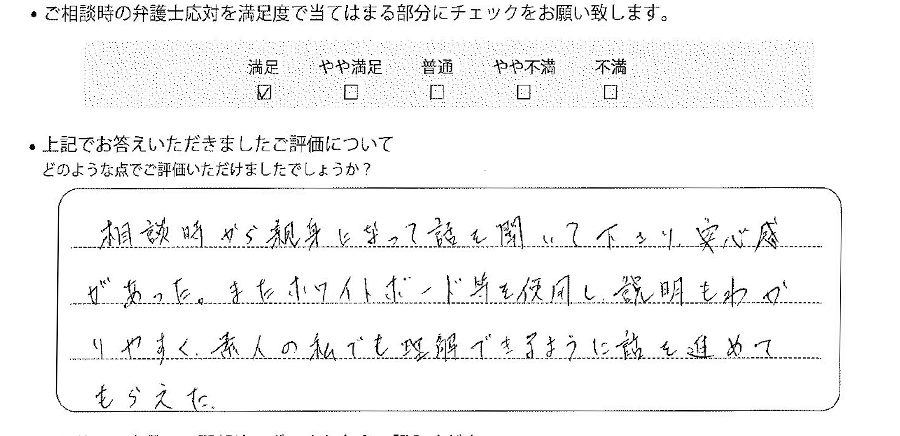 • ご相談時の弁護士応対を満足度で当てはまる部分にチェックをお願い致します。
満足 やや満足 普通 やや不満 不満
☑ □ □ □ □
• 上記でお答えいただきましたご評価について
どのような点でご評価いただけましたでしょうか？
相談時から親身になって話を聞いて下さり、安心感
があった。またホワイトボード等を使用し、説明もわか
りやすく、素人の私でも理解できるように話を進めて
もらえた。